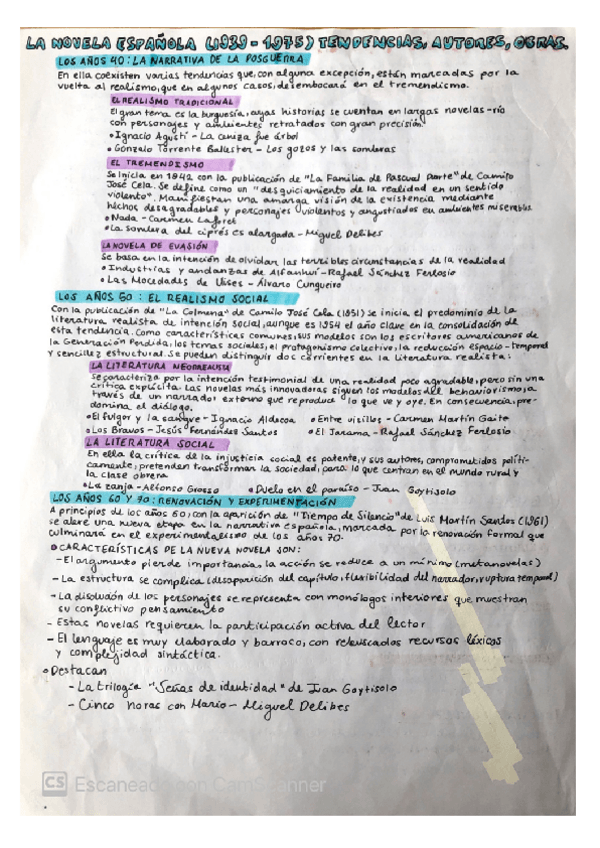 LA NOVELA ESPAÑOLA (1939-1975) TENDENCIAS, AUTORES, OBRAS.
LOS AÑOS 40: LA NARRATIVA DE LA POSGUERRA
En ella coexisten varias tendencias que, con alguna excepción, están marcadas por la
vuelta al realismo, que en algunos casos, desembocará en el tremendismo.
EL REALISMO TRADICIONAL
El gran tema es la burguesía, cuyas historias se cuentan en largas novelas-río
con personajes y ambientes retratados con gran precisión.
• Ignacio Agustí - La ceniza fue árbol
• Gonzalo Torrente Ballester - Los gozos y las sombras
EL TREMENDISMO
Se inicia en 1942 con la publicación de "La Familia de Pascual Duarte" de Camilo
José Cela. Se define como un "desquiciamiento de la realidad en un sentido
violento". Manifiestan una amarga visión de la existencia mediante
hechos desagradables y personajes violentos y angustiados en ambientes miserables
• Nada - Carmen Laforet
• La sombra del ciprés es alargada - Miguel Delibes
LA NOVELA DE EVASIÓN
Se basa en la intención de olvidar las terribles circunstancias de la realidad
• Industrias y andanzas de Alfanhuí - Rafael Sánchez Ferlosio
• Las Mocedades de Ulises - Álvaro Cunqueiro
LOS AÑOS 50: EL REALISMO SOCIAL
Con la publicación de "La Colmena" de Camilo José Cela (1951) se inicia el predominio de la
literatura realista de intención social, aunque es 1954 el año clave en la consolidación de
esta tendencia. Como características comunes, sus modelos son los escritores americanos de
la Generación Perdida, los temas sociales, el protagonismo colectivo, la reducción espacio-temporal
y sencillez estructural. Se pueden distinguir dos corrientes en la literatura realista:
LA LITERATURA NEORREALISTA
Se caracteriza por la intención testimonial de una realidad poco agradable, pero sin una
crítica explícita. Las novelas más innovadoras siguen los modelos del behaviorismo, a
través de un narrador externo que reproduce lo que ve y oye. En consecuencia, pre-
domina el diálogo.
• El fulgor y la sangre - Ignacio Aldecoa • Entre visillos - Carmen Martín Gaite
• Los Bravos - Jesús Fernández Santos • El Jarama - Rafael Sánchez Ferlosio
LA LITERATURA SOCIAL
En ella la crítica de la injusticia social es patente, y sus autores, comprometidos políti-
camente, pretenden transformar la sociedad, para lo que centran en el mundo rural y
la clase obrera
• La zanja - Alfonso Grosso • Duelo en el paraíso - Juan Goytisolo
LOS AÑOS 60 Y 70: RENOVACIÓN Y EXPERIMENTACIÓN
A principios de los años 60, con la aparición de "Tiempo de Silencio" de Luis Martín Santos (1961)
se abre una nueva etapa en la narrativa española, marcada por la renovación formal que
culminará en el experimentalismo de los años 70.
• CARACTERÍSTICAS DE LA NUEVA NOVELA SON:
- El argumento pierde importancia, la acción se reduce a un mínimo (metanovelas)
- La estructura se complica (desaparición del capítulo, flexibilidad del narrador, ruptura temporal)
- La disolución de los personajes se representa con monólogos interiores que muestran
su conflictivo pensamiento
- Estas novelas requieren la participación activa del lector
- El lenguaje es muy elaborado y barroco, con rebuscados recursos léxicos
y complejidad sintáctica.
• Destacan
- La trilogía "Señas de identidad" de Juan Goytisolo
- Cinco horas con Mario - Miguel Delibes
CS Escaneado con CamScanner